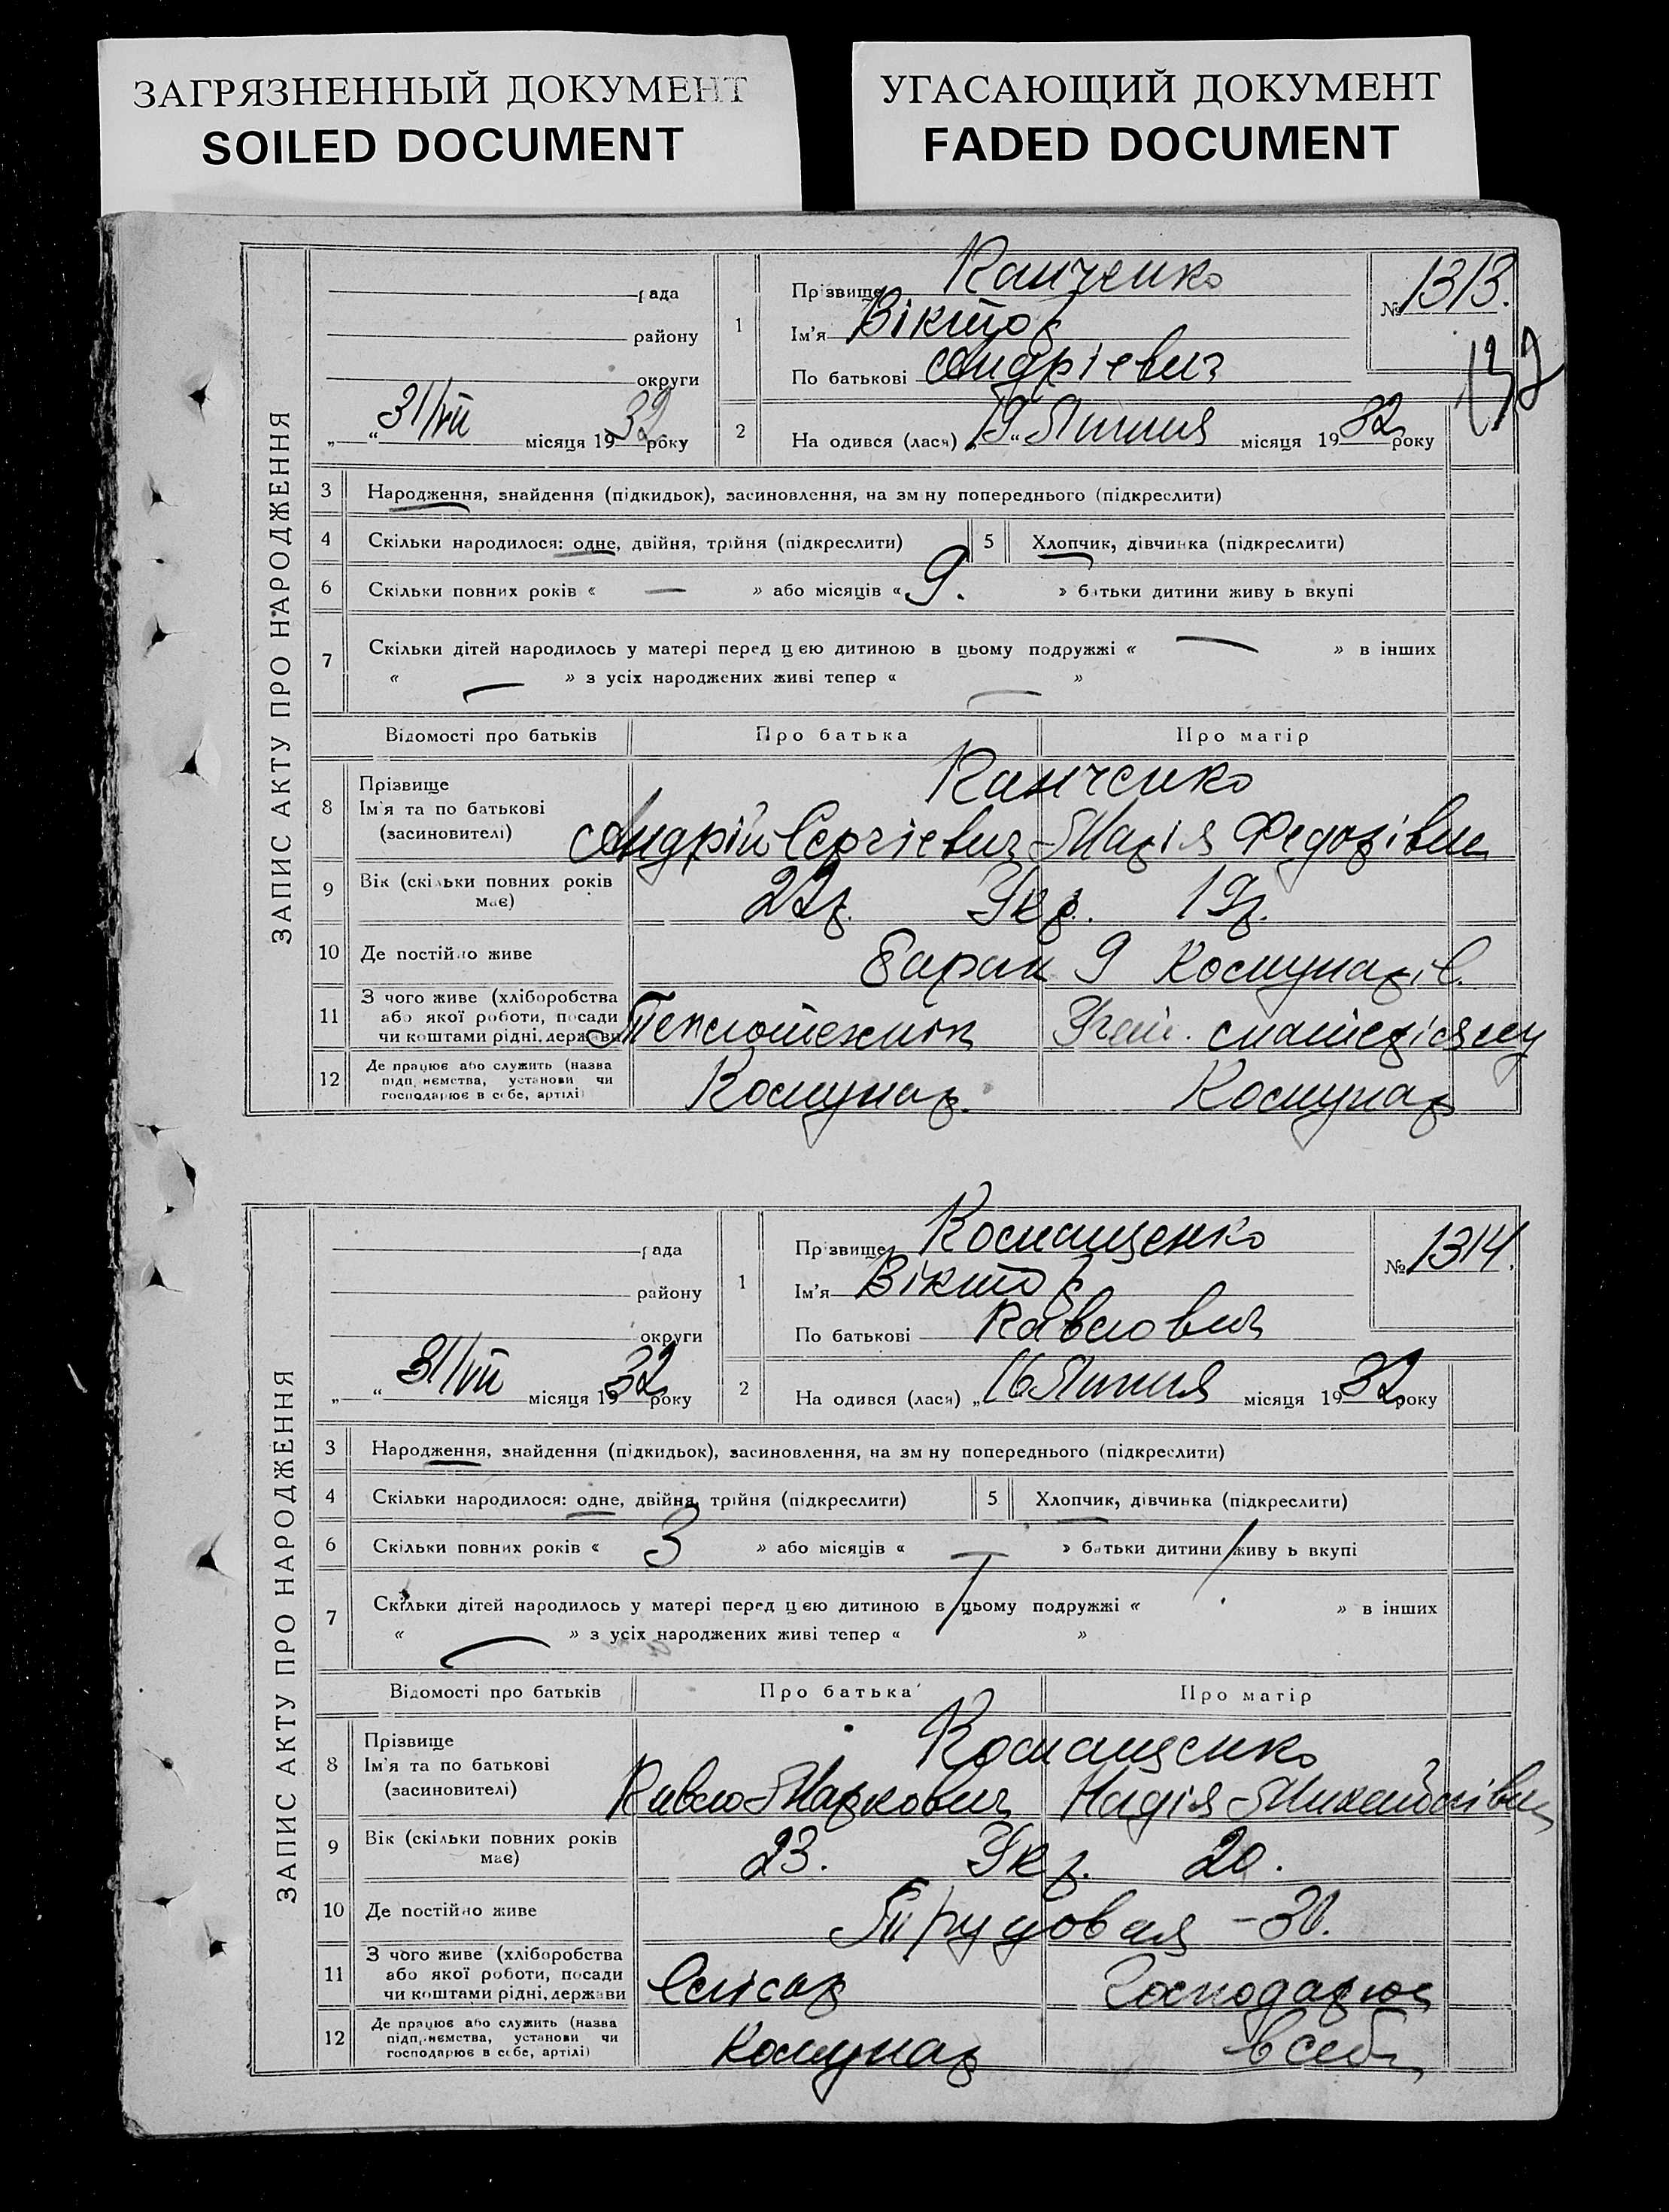 ЗАГРЯЗНЕННЫЙ ДОКУМЕНТ
SOILED DOCUMENT
УГАСАЮЩИЙ ДОКУМЕНТ
FADED DOCUMENT
ЗАПИС АКТУ ПРО НАРОДЖЕННЯ
рада
району
округи
„ “ 31/VII місяця 1932 року
1
Прізвище Канченко
Ім'я Віктор
По батькові Андрієвич
№ 1313.
132
2 На одився (лася) „19“ Липня місяця 1932 року
3 Народження, знайдення (підкидьок), засиновлення, на зм ну попереднього (підкреслити)
4 Скільки народилося: одне, двійня, трійня (підкреслити) 5 Хлопчик, дівчинка (підкреслити)
6 Скільки повних років « — » або місяців « 9. » батьки дитини живу ь вкупі
7 Скільки дітей народилось у матері перед цією дитиною в цьому подружжі « — » в інших
« — » з усіх народжених живі тепер « — »
Відомості про батьків Про батька Про матір
8 Прізвище Канченко
Ім'я та по батькові
(засиновителі) Андрій Сергієвич Марія Федорівн
9 Вік (скільки повних років має) 22р. Укр. 19р.
10 Де постійно живе Барак 9 Комунарів.
11 З чого живе (хліборобства
або якої роботи, посади
чи коштами рідні, держави Теплотехнік
12 Де працює або служить (назва
підприємства, установи чи
господарює в себе, артілі) Комунар. Комунар
ЗАПИС АКТУ ПРО НАРОДЖЕННЯ
рада
району
округи
„ “ 31/VII місяця 1932 року
1
Прізвище Комащенко
Ім'я Віктор
По батькові Павлович
№ 1314.
2 На одився (лася) „16 Липня місяця 1932 року
3 Народження, знайдення (підкидьок), засиновлення, на зм ну попереднього (підкреслити)
4 Скільки народилося: одне, двійня, трійня (підкреслити) 5 Хлопчик, дівчинка (підкреслити)
6 Скільки повних років « 3 » або місяців « — » батьки дитини живу ь вкупі
7 Скільки дітей народилось у матері перед цією дитиною в цьому подружжі « » в інших
« — » з усіх народжених живі тепер « »
Відомості про батьків Про батька Про матір
8 Прізвище Комащенко
Ім'я та по батькові
(засиновителі) Павло Маркович Надія Михайлівн
9 Вік (скільки повних років має) 23. Укр. 20.
10 Де постійно живе Трудовая - 30.
11 З чого живе (хліборобства
або якої роботи, посади
чи коштами рідні, держави Слюсар Господарює
12 Де працює або служить (назва
підприємства, установи чи
господарює в себе, артілі) Комунар в себе